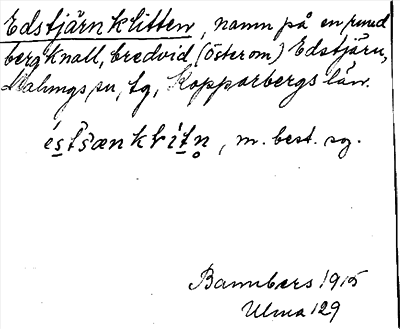 Edstjärnklitten, namn på en rund
berg knall, bredvid (öster om) Edstjärn,
Malungs sn, tg, Kopparbergs län.
éstsænkrítn̥, m. best. sg.
Bannbers 1915
Ulma 129